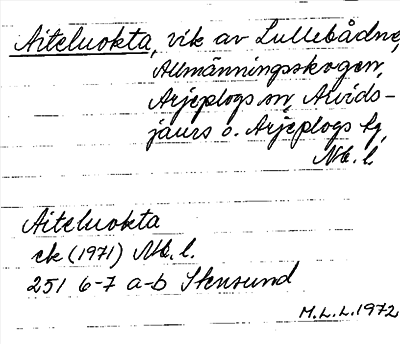 Aiteluokta, vik av Lullebådne,
Allmänningsskogen,
Arjeplogs sn, Arvids-
jaurs o. Arjeplogs lj,
Nb. l.
Aiteluokta
ek (1971) Nb. l.
251 6-7 a-b Stensund
M.L.L. 1972